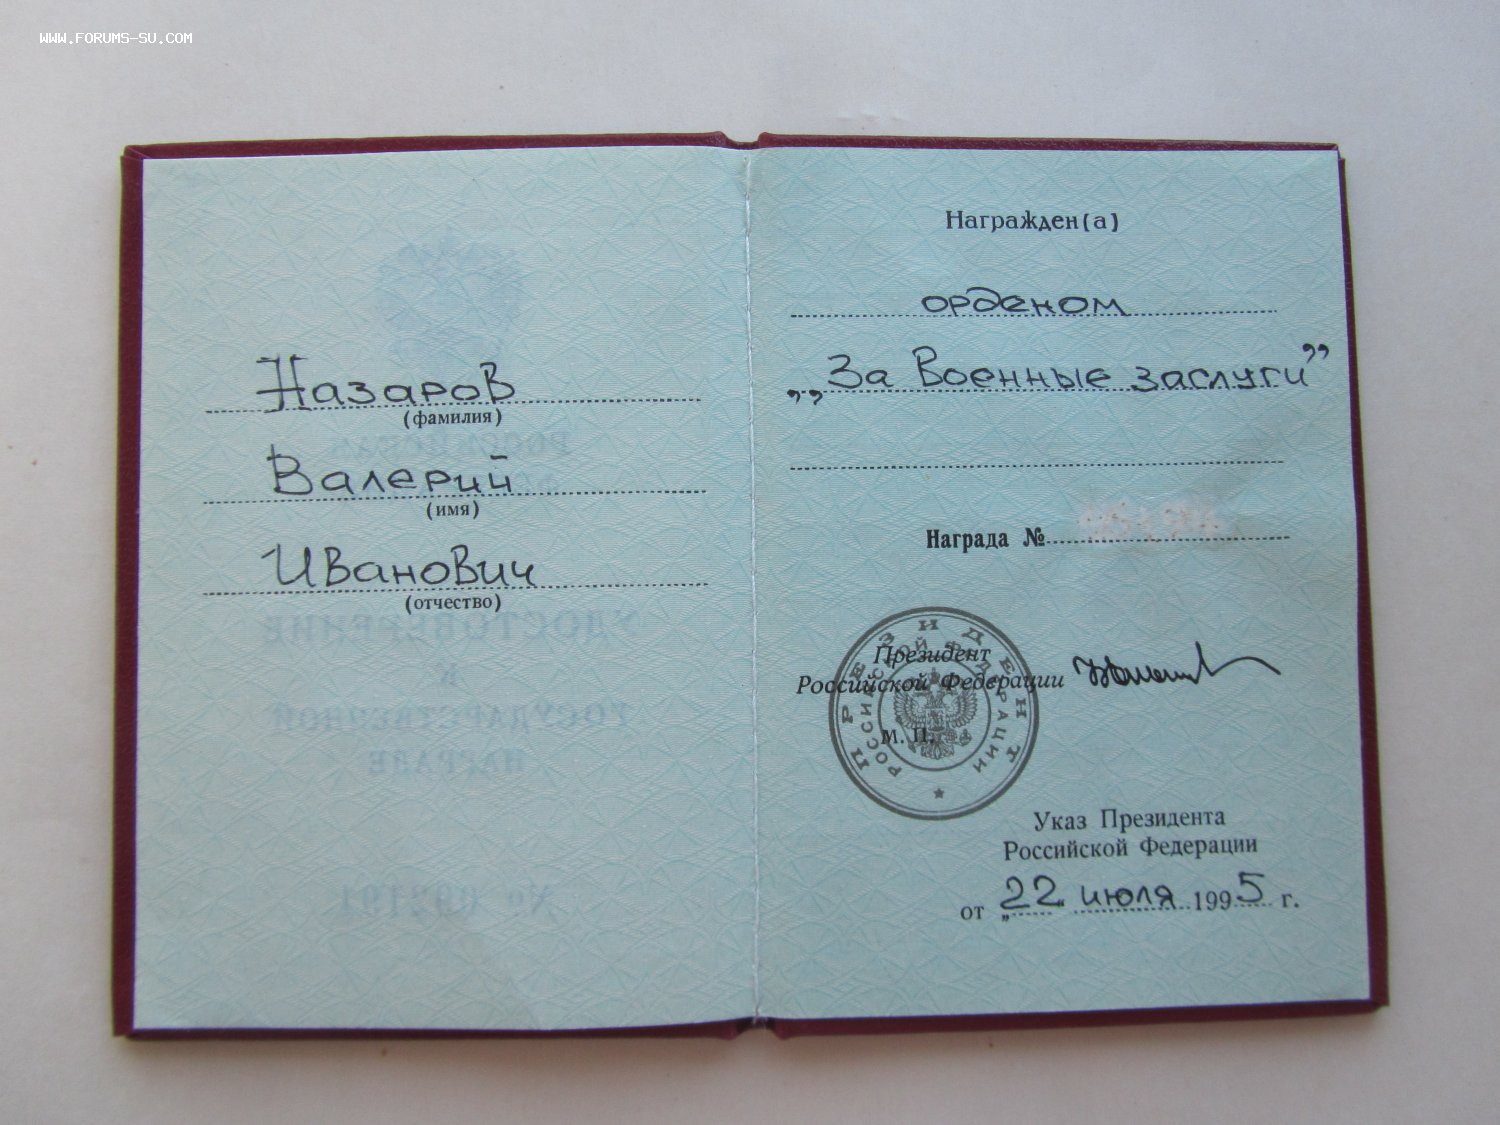 WWW.FORUMS-SU.COM
Назаров
(фамилия)
Валерий
(имя)
Иванович
(отчество)
РОССИЙСКАЯ
УДОСТОВЕРЕНИЕ
К
ГОСУДАРСТВЕННОЙ
НАГРАДЕ
Награжден(а)
орденом
„За Военные заслуги”
Награда №
ПРЕЗИДЕНТ
РОССИЙСКОЙ ФЕДЕРАЦИИ
Президент
Российской Федерации
М. П.
Указ Президента
Российской Федерации
от „22 июля 1995 г.